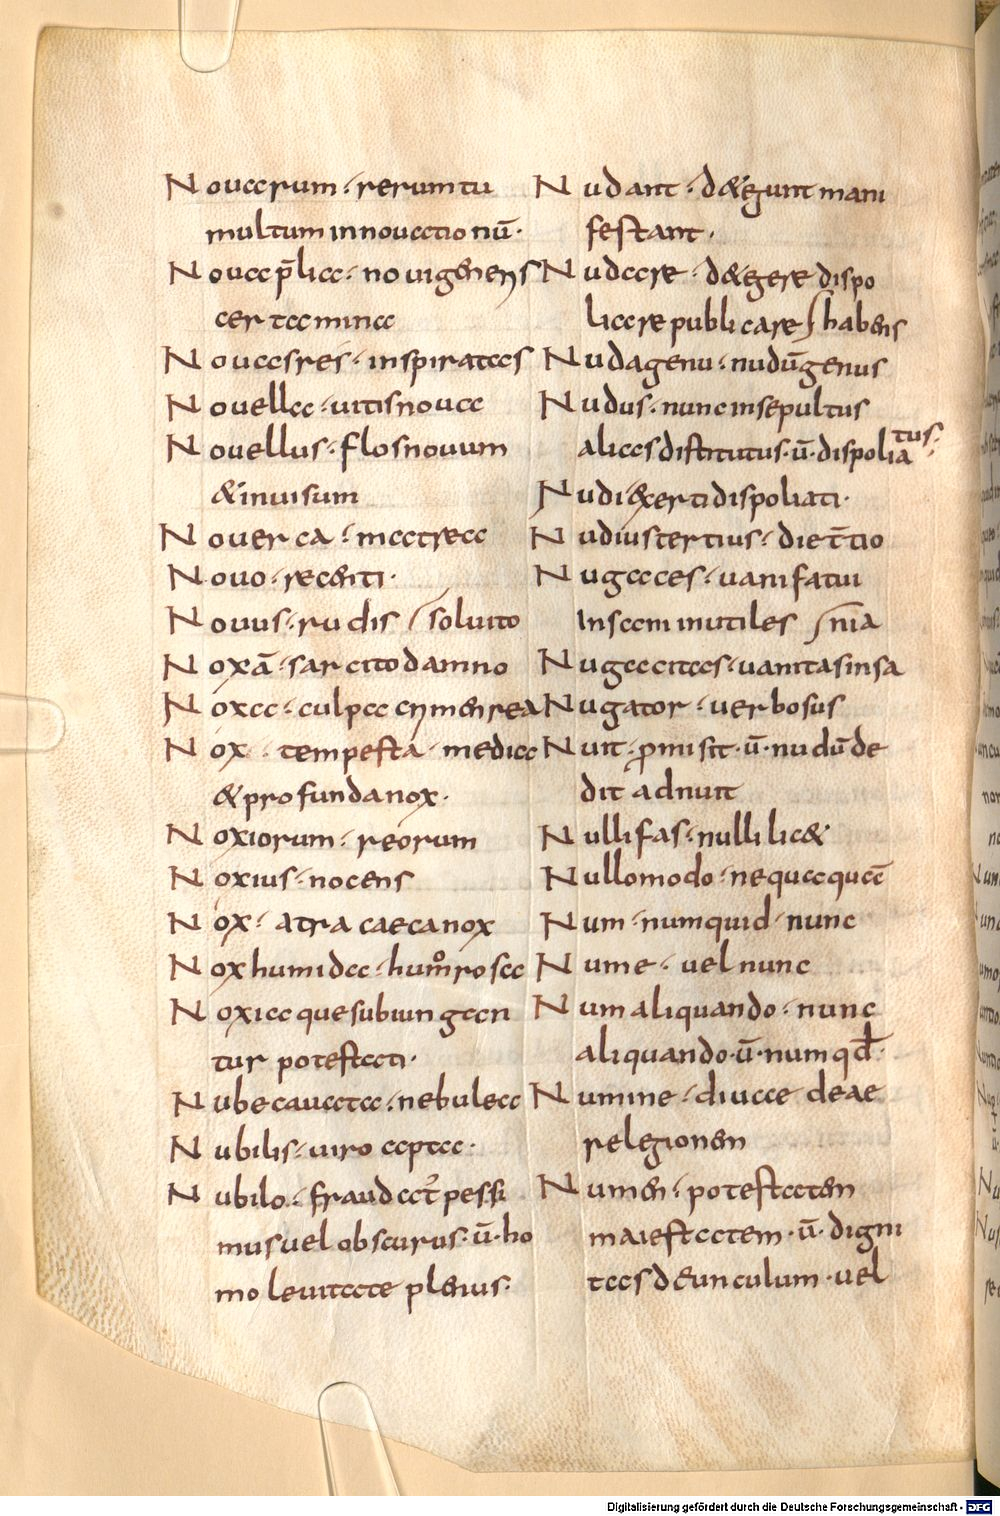 Nouarum · rerum tu
multum innouatio nū ·
Noua p̄lia · noui generis
certamina
Nouas res · inspiratas
Nouella · uitis noua
Nouellus · flos nouum
& inuisum
Nouerca · matrea
Nouo · recenti ·
Nouus · rudis soluito
Noxā · sarcito damno
Noxa · culpa crimen rea
Nox · tempesta · media
& profunda nox ·
Noxiorum · reorum
Noxius · nocens
Nox · atra caeca nox
Nox humida · humor rosa
Noxia que subiun gan
tur potestati ·
Nube cauata · nebulaa
Nubilis · uiro apta ·
Nubilo · fraud pessi
mus uel obscurus · ū · ho
mo leuitate plenus ·
Nudant · d&egunt mani
festant ·
Nudare · d&egere dispo
liare publicare habens
Nuda genu · nudū genus
Nudus · nunc insepultus
alias distitutus · ū · dispolia
tus ·
Nudi & certi dispoliati ·
Nudius tertius · die t̄tio
Nugaces · uani fatui
insam inutiles nīa
Nugacitas · uanitas insa
Nugator · uerbosus
Nuit · promisit · ū · nudū de
dit adnuit
Nulli fas · nulli lic&
Nullo modo · nequaquā
Num · numquid · nunc
Nume · uel nunc
Num aliquando · nunc
aliquando · ū · num qd ·
Numine · diuae deae
relegionem
Numen · potestatem
maiestatem · ū · digni
tas d unculum · uel
Digitalisierung gefördert durch die Deutsche Forschungsgemeinschaft - DFG